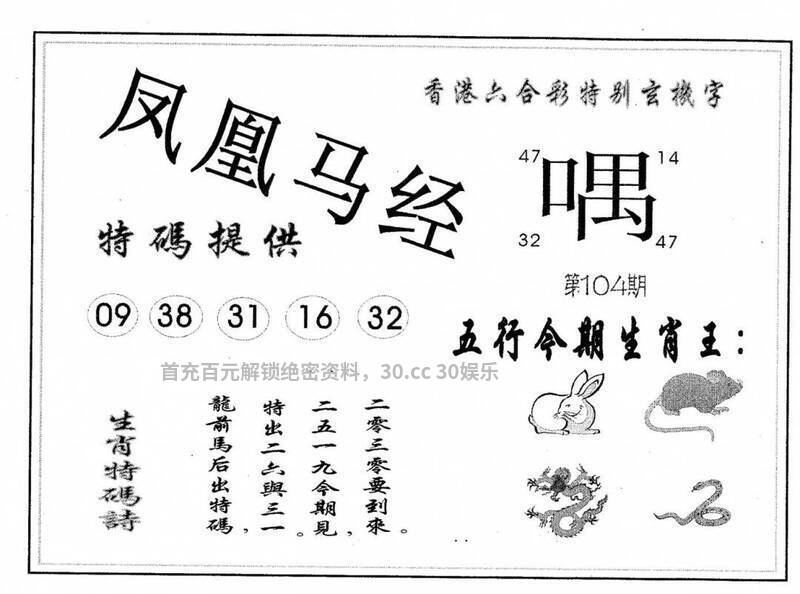 凤凰马经
香港六合彩特别玄機字
47
14
喁
32
47
特碼提供
第104期
09 38 31 16 32
五行今期生肖王：
首充百元解锁绝密资料，30.cc 30娱乐
生肖特碼詩
二零三零要到來。
二五一九今期見，
特出二六與三一。
龍前馬后出特碼，